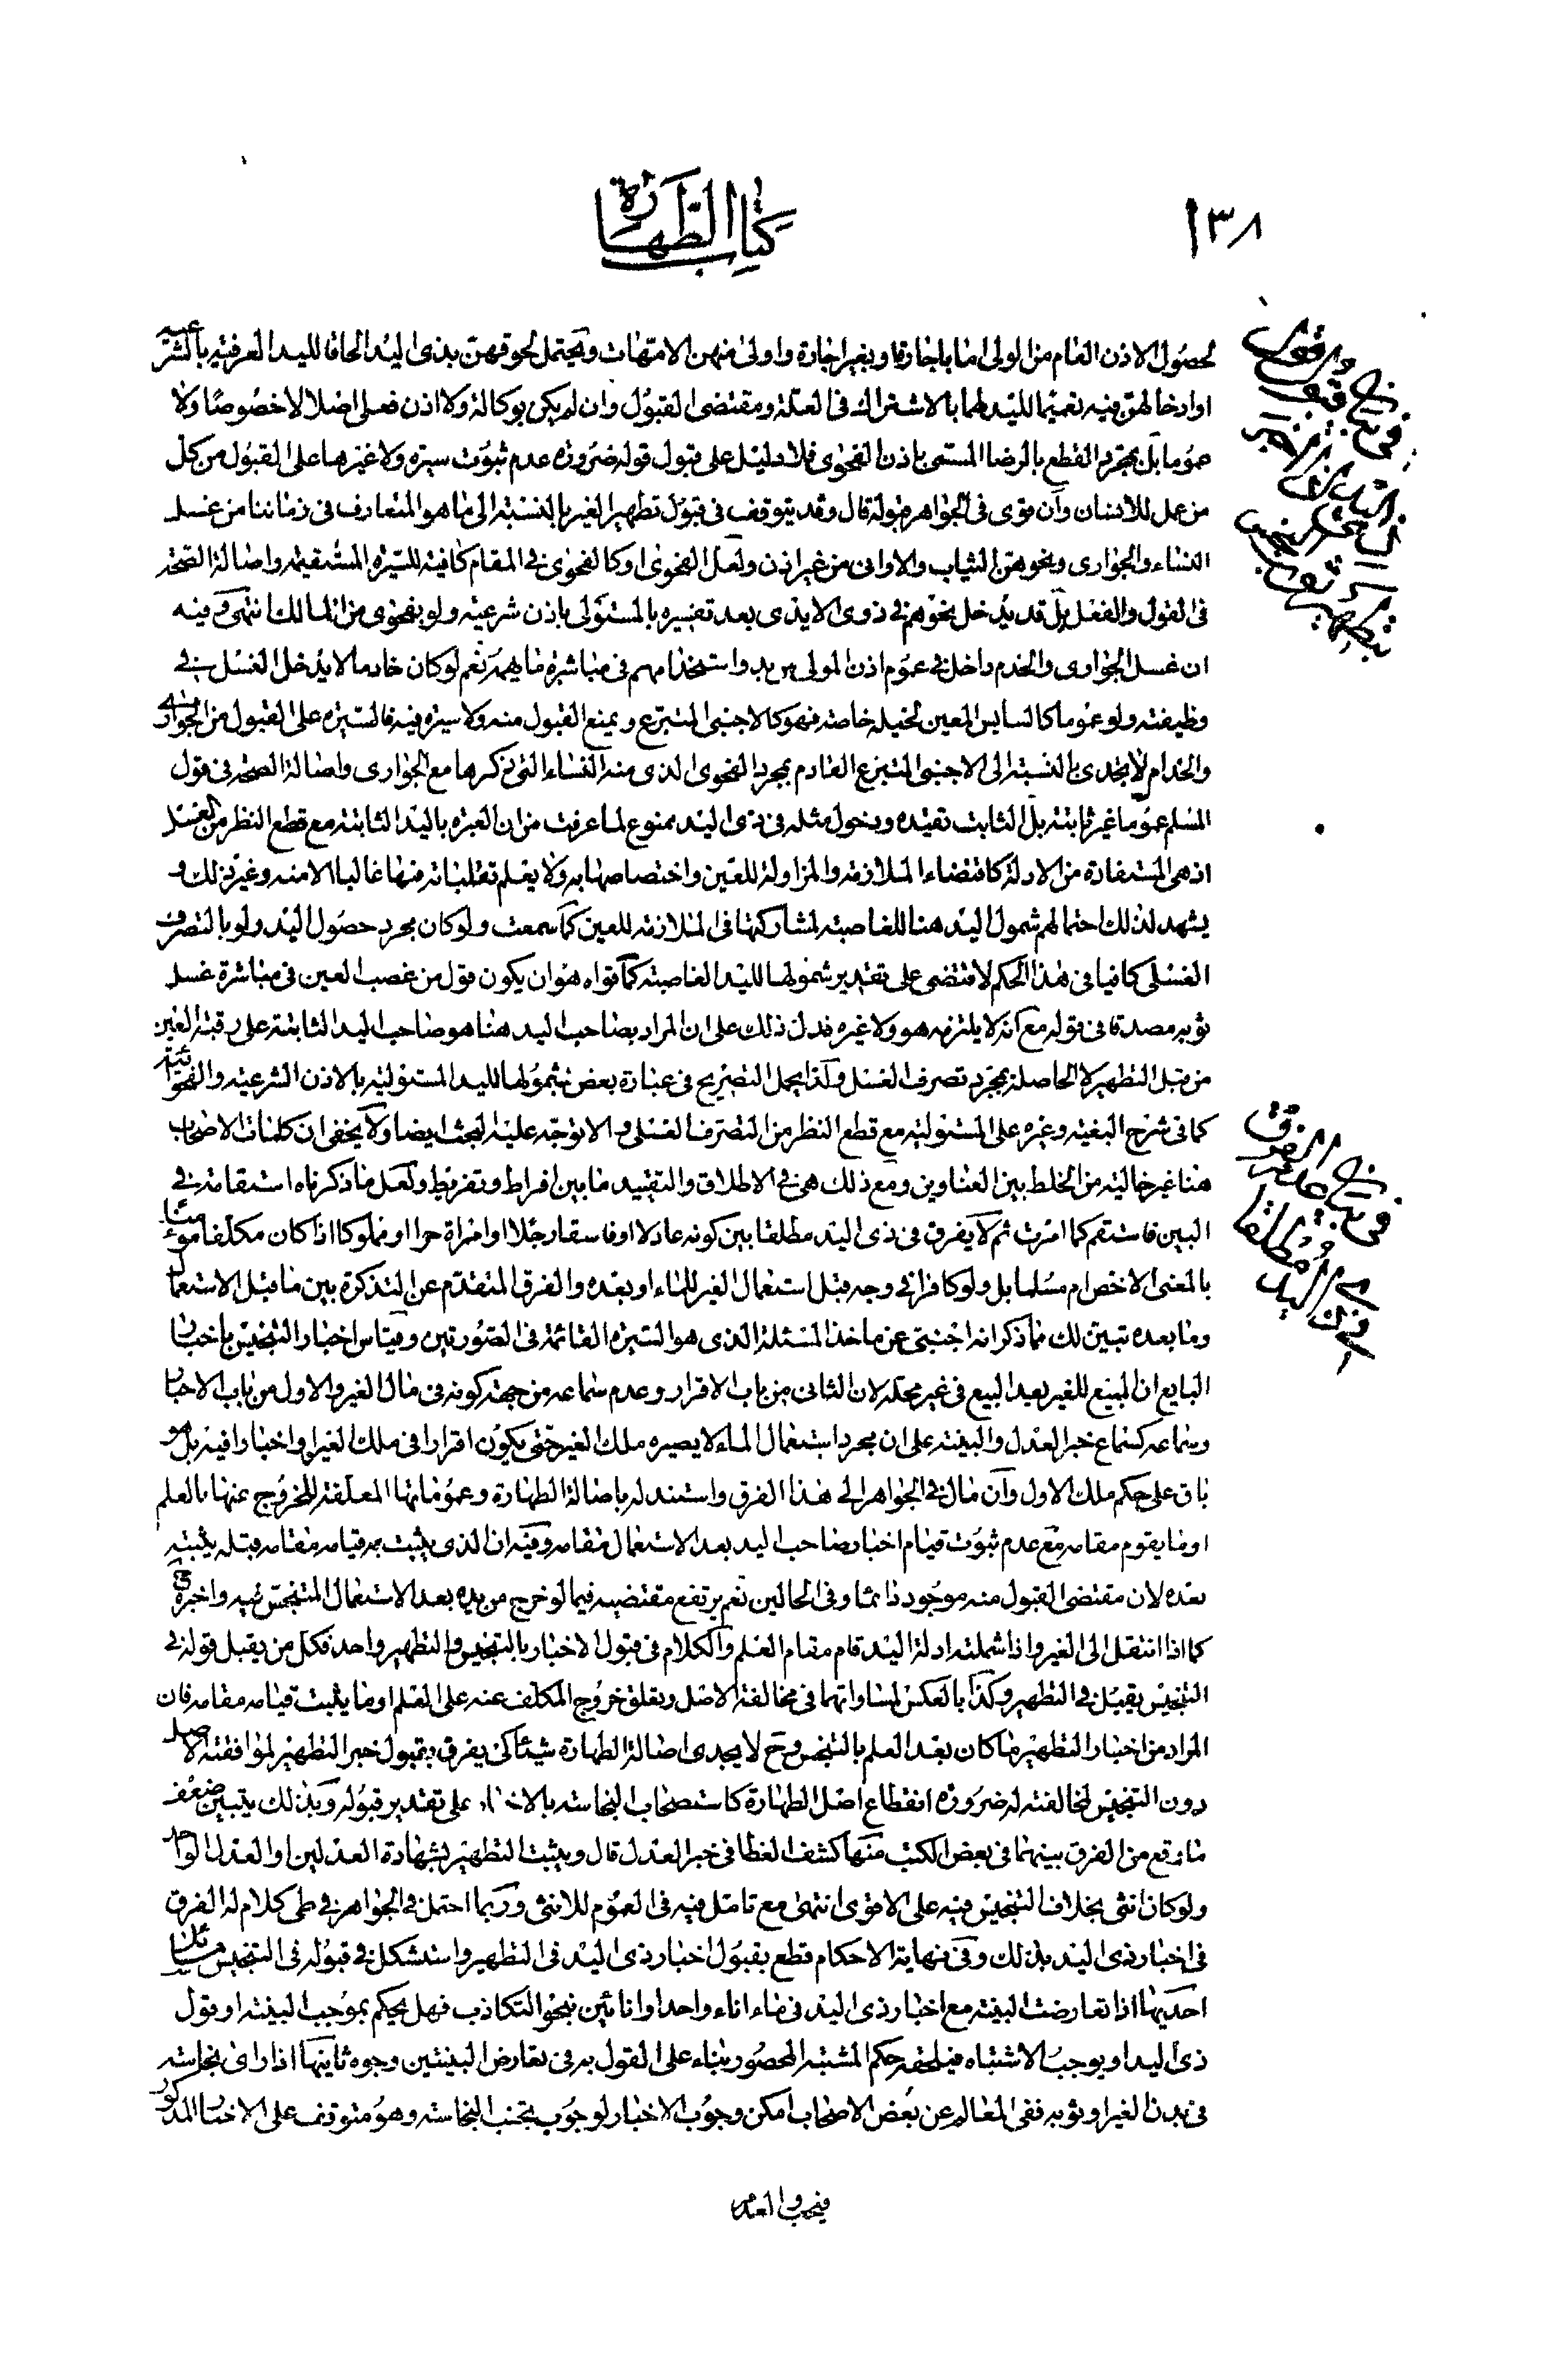 ١٣٨
كتاب الطهارة
لحصول الاذن العام من الولى اما باجارة او بغير اجارة واولى منهن الامهات ويحتمل لحوقهن بذى اليد الحاقا لليد العرفية بالشرعية
او ادخالهن فيه تعميما لليد لهما بالاشتراك فى العلة ومقتضى القبول وان لم يكن بوكالة ولا اذن فعلى اصلا لا خصوصا ولا
عموما بل بمجرد القطع بالرضا المسمى باذن الفحوى فلا دليل على قبول قوله ضرورة عدم ثبوت سيرة ولا غيرها على القبول من كل
من عمل للانسان وان قوى فى الجواهر قبوله قال وقد يتوقف فى قبول تطهير الغير بالنسبة الى ما هو المتعارف فى زماننا من غسل
النساء والجوارى ونحوهن الثياب والاوانى من غير اذن ولعل الفحوى او كالفحوى فى المقام كافية للسيرة المستقيمة واصالة الصحة
فى القول والفعل بل قد يدخل نحوهم فى ذوى الايدى بعد تفسيره بالمستولى باذن شرعية ولو بفحوى من المالك انتهى وفيه
ان غسل الجوارى والخدم داخل فى عموم اذن المولى واستخدامهم فى مباشرة ما يهمه نعم لو كان خادما لا يدخل الغسل فى
وظيفته ولو عموما كالسايس المعين لخيله خاصة فهو كالاجنبى المتبرع ويمنع القبول منه ولا سيرة فيه فالسيرة على القبول من الجوارى
والخدام لا يجدى بالنسبة الى الاجنبى المتبرع القادم بمجرد الفحوى الذى منه النساء التى ذكرها مع الجوارى واصالة الصحة فى قول
المسلم عموما غير ثابتة بل الثابت تقيده ودخول مثله فى ذى اليد ممنوع لما عرفت من ان العبرة باليد الثابتة مع قطع النظر من الغسل
اذ هى المستفادة من الادلة كاقتضاء الملازمة والمزاولة للعين واختصاصها به ولا يعلم تقلباته منها غالبا الا منه وغير ذلك و
يشهد لذلك احتمالهم شمول اليد هنا للغاصبة لمشاركتها فى الملازمة للعين كما سمعت ولو كان مجرد حصول اليد ولو بالتصرف
الغسلى كافيا فى هذا الحكم لاقتضى على تقدير شمولها لليد الغاصبة كما قواه هو ان يكون قول من غصب العين فى مباشرة غسل
ثوبه مصدقا فى قوله مع انه لا يلتزمه هو ولا غيره فدل ذلك على ان المراد بصاحب اليد هنا هو صاحب اليد الثابتة على رقبة العين
من قبل التطهير لا الحاصلة بمجرد تصرف الغسل ولذا يحمل التصريح فى عبارة بعض بشمولها لليد المستولية بالاذن الشرعية والفحوائية
كما فى شرح البغية وغيره على المستولية مع قطع النظر من التصرف الغسلى والا توجه عليه البحث ايضا ولا يخفى ان كلمات الاصحاب
هنا غير خالية من الخلط بين العناوين ومع ذلك هى فى الاطلاق والتقييد ما بين افراط وتفريط ولعل ما ذكرناه استقامة فى
البين فاستقم كما امرت ثم لا يفرق فى ذى اليد مطلقا بين كونه عادلا او فاسقا رجلا او امراة حرا او مملوكا اذا كان مكلفا مومنا
بالمعنى الاخص ام مسلما بل ولو كافرا فى وجه قبل استعمال الغير للماء او بعده والفرق المتقدم عن التذكرة بين ما قبل الاستعمال
وما بعده تبين لك مما ذكر انه اجنبى عن ماخذ المسئلة الذى هو السيرة القائمة فى الصورتين وقياس اخبار التنجيس باخبار
البايع ان المبيع للغير بعد البيع فى غير محله لان الثانى من باب الاقرار وعدم سماعه من جهة كونه فى مال الغير والاول من باب الاخبار
وسماعه كسماع خبر العدل والبينة على ان مجرد استعمال الماء لا يصيره ملك الغير حتى يكون اقرارا فى ملك الغير او اخبارا فيه بل هو
باق على حكم ملك الاول وان مال فى الجواهر الى هذا الفرق واستند له باصالة الطهارة وعموماتها المعلقة للخروج عنها بالعلم
او ما يقوم مقامه مع عدم ثبوت قيام اخبار صاحب اليد بعد الاستعمال مقامه وفيه ان الذى يثبت به قيامه مقامه قبله يثبته
بعده لان مقتضى القبول منه موجود دائما وفى الحالين نعم يرتفع مقتضيه فيما لو خرج من يده بعد الاستعمال المتنجس به واخبره
كما اذا انتقل الى الغير واذا شملته ادلة اليد قام مقام العلم والكلام فى قبول الاخبار بالتنجيس والتطهير واحد فكل من يقبل قوله فى
التنجيس يقبل فى التطهير وكذا بالعكس لمساواتهما فى مخالفة الاصل وتعلق خروج المكلف عنه على العلم او ما يثبت قيامه مقامه فان
المراد من اخبار التطهير ما كان بعد العلم بالتنجيس وح لا يجدى اصالة الطهارة شيئا كى يفرق بقبول خبر التطهير لموافقته الاصل
دون التنجيس لمخالفته له ضرورة انقطاع اصل الطهارة كاستصحاب النجاسة بالاخبار على تقدير قبوله وبذلك يتبين ضعف
ما وقع من الفرق بينهما فى بعض الكتب منها كشف الغطا فى خبر العدل قال ويثبت التطهير بشهادة العدلين او العدل الواحد
ولو كان انثى بخلاف التنجيس فيه على الاقوى انتهى مع تامل فيه فى العموم للانثى وربما احتمل فى الجواهر فى طى كلام له الفرق
فى اخبار ذى اليد بذلك وفى نهاية الاحكام قطع بقبول اخبار ذى اليد فى التطهير واستشكل فى قبوله فى التنجيس مسائل
احديها اذا تعارضت البينة مع اخبار ذى اليد فى ماء اناء واحد او انائين نحو التكاذب فهل يحكم بموجب البينة او قول
ذى اليد او يوجب الاشتباه فيلحقه حكم المشتبه المحصور بناء على القول به فى تعارض البينتين وجوه ثانيها اذا راى نجاسته
فى بدن الغير او ثوبه ففى المعالم عن بعض الاصحاب امكن وجوب الاخبار لوجوب تجنب النجاسة وهو متوقف على الاخبار المذكور
فيجب والعدم